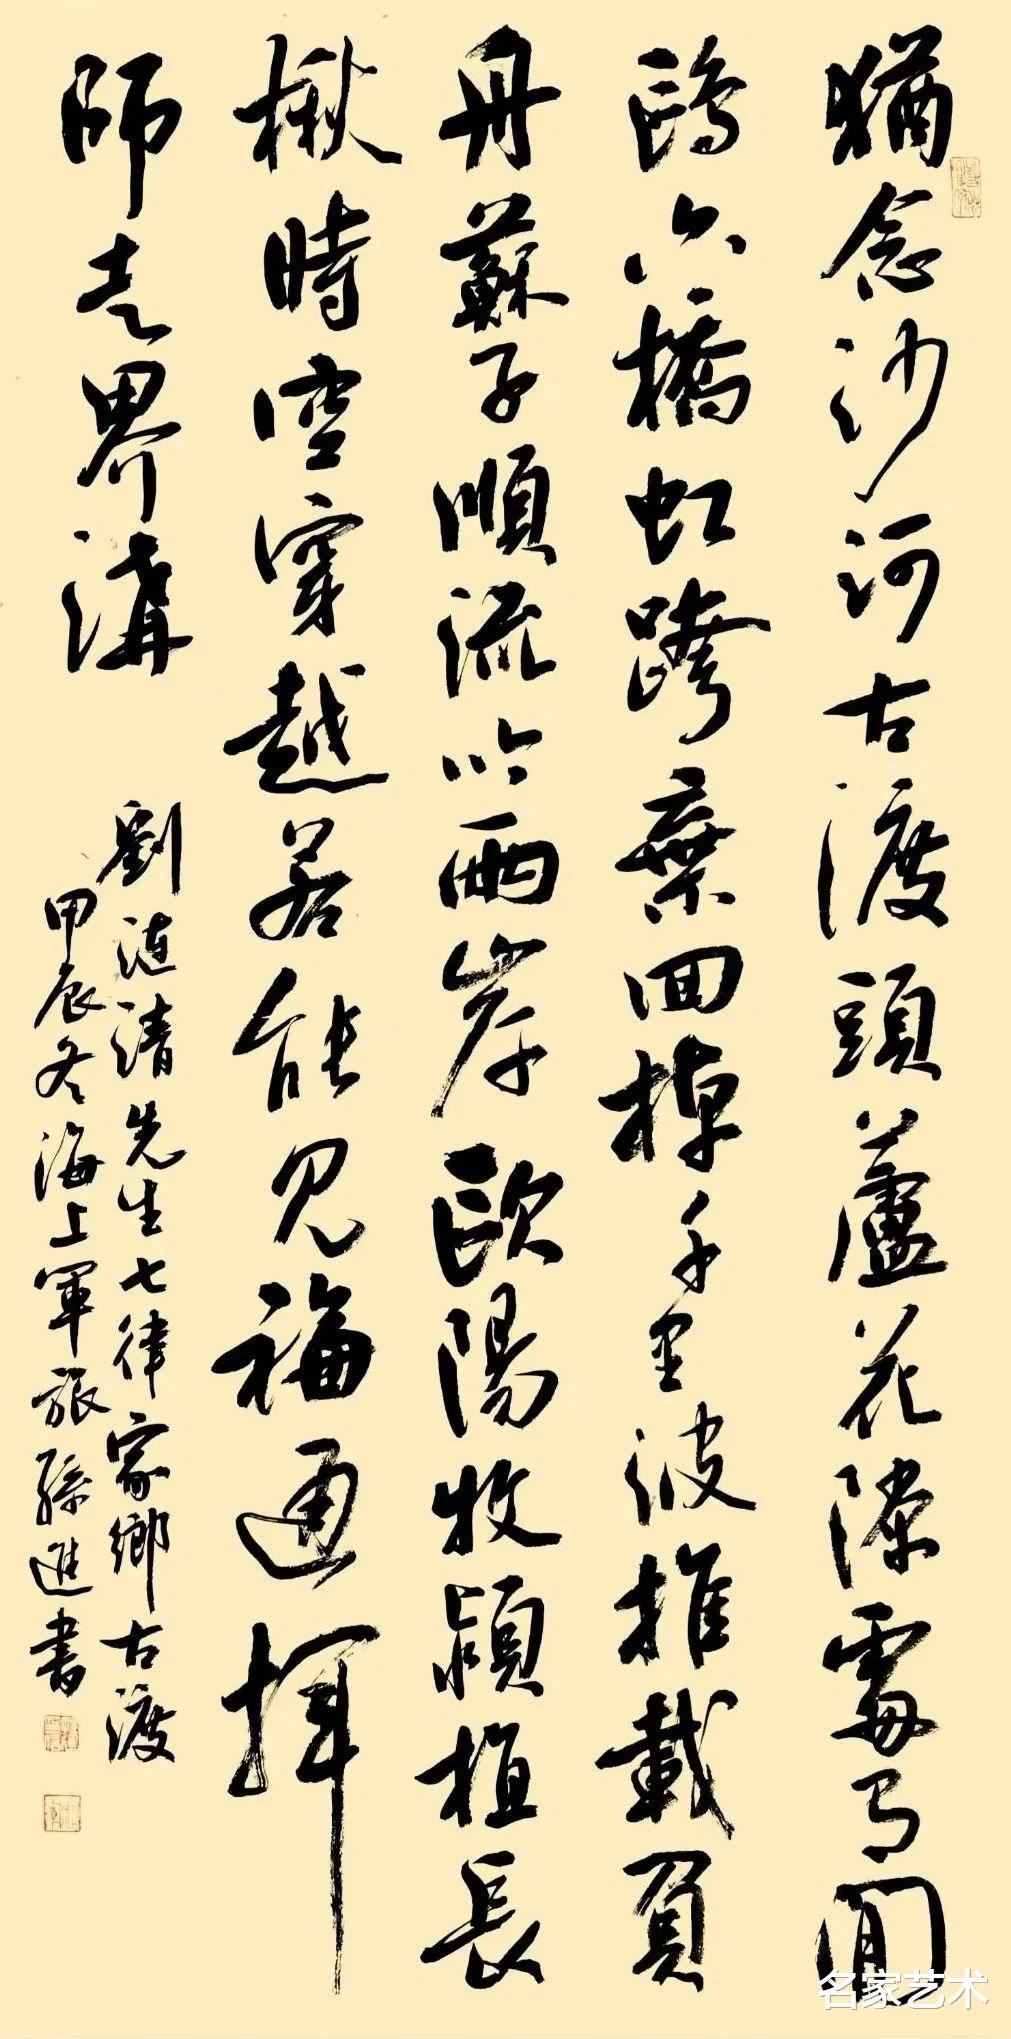 猶念沙河古渡頭蘆花深處有閒
鷗六橋虹跨棄回棹千里波推載負
舟蘇子順流吟兩岸歐陽牧潁植長
楸時空穿越若能見福通揮
師走界溝
劉漣清先生七律家鄉古渡
甲辰冬海上軍旅孫進書
名家艺术